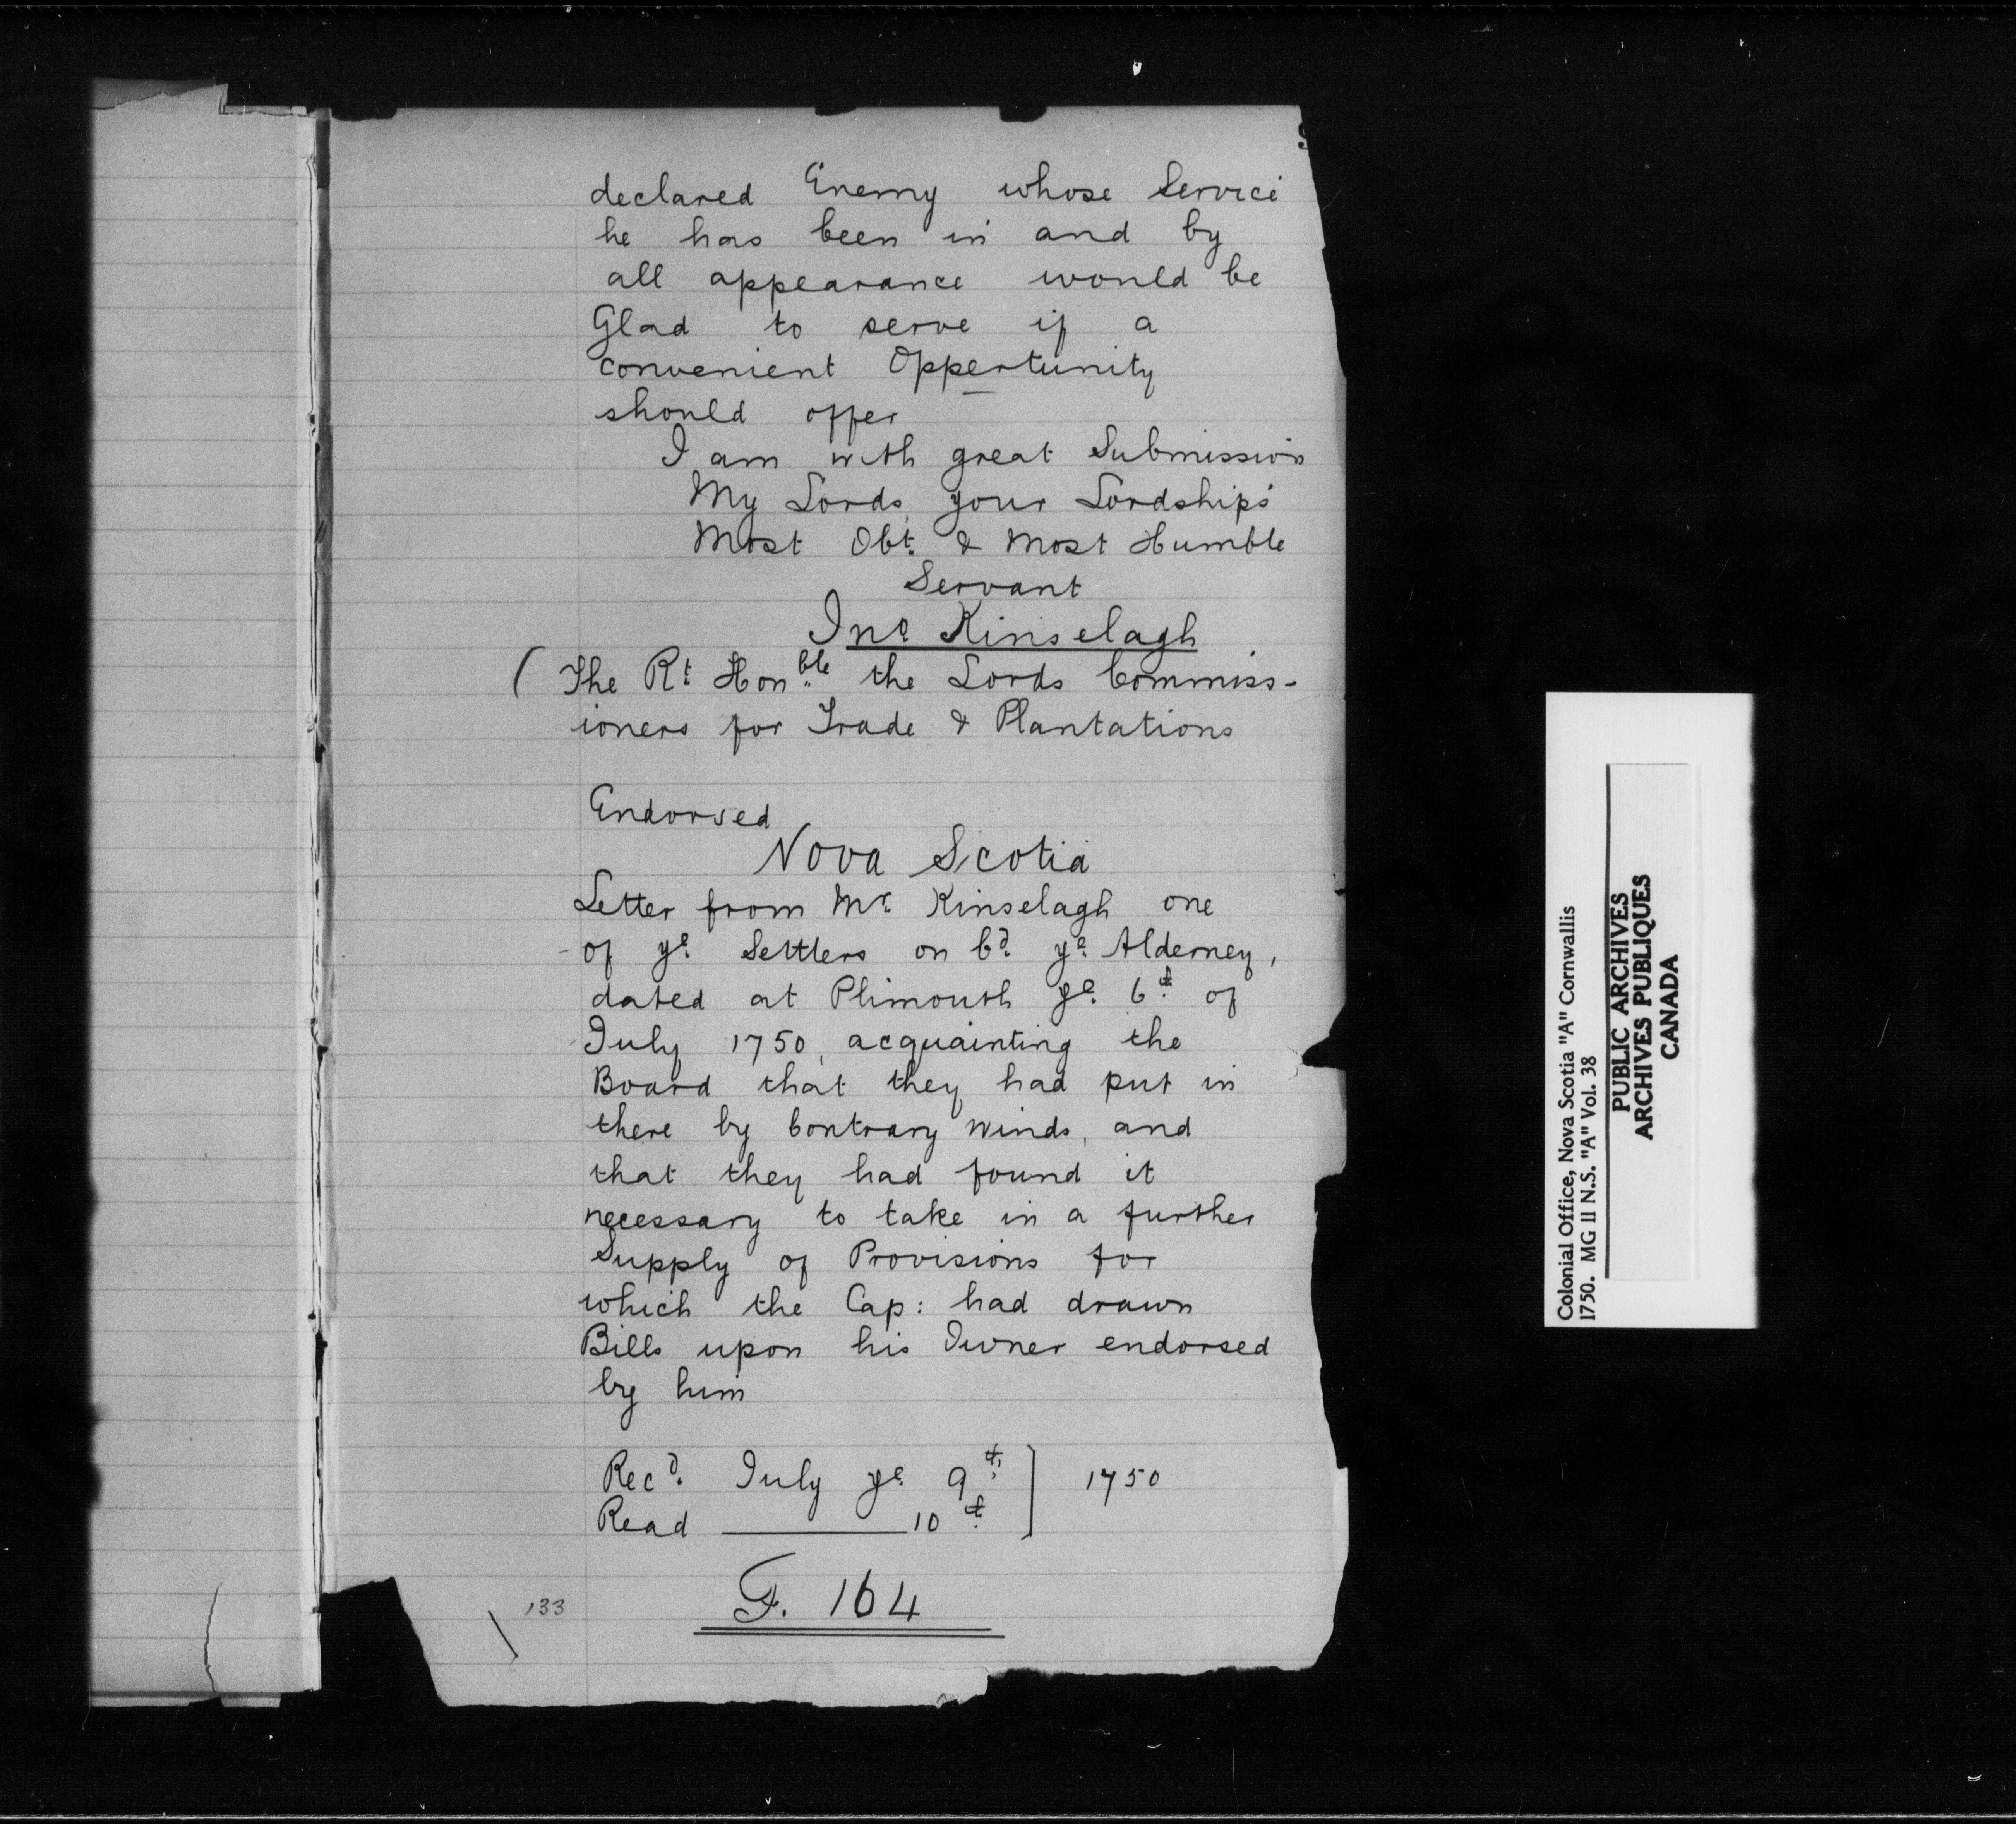 declared Enemy whose Service
he has been in and by
all appearance would be
Glad to serve if a
convenient Oppertunity
should offer
I am with great Submission
My Lords, your Lordships'
Most Obt. & Most Humble
Servant
Jno. Kinselagh
( The Rt. Honble the Lords Commiss-
ioners for Trade & Plantations
Endorsed
Nova Scotia
Letter from Mr. Kinselagh one
of ye. Settlers on bd. ye. Alderney,
dated at Plimouth ye. 6th. of
July 1750, acquainting the
Board that they had put in
there by Contrary Winds, and
that they had found it
necessary to take in a further
Supply of Provisions for
which the Cap: had drawn
Bills upon his Owner endorsed
by him
Recd. July ye. 9th. ] 1750
Read 10th. ]
F. 164
133
Colonial Office, Nova Scotia "A" Cornwallis
1750. MG 11 N.S. "A" Vol. 38
PUBLIC ARCHIVES
ARCHIVES PUBLIQUES
CANADA